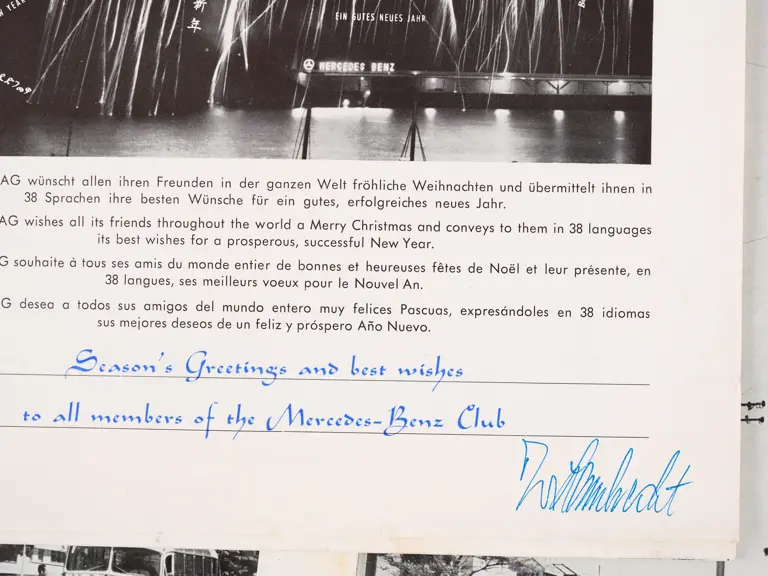 YEAR
新年
EIN GUTES NEUES JAHR
MERCEDES BENZ
AG wünscht allen ihren Freunden in der ganzen Welt fröhliche Weihnachten und übermittelt ihnen in
38 Sprachen ihre besten Wünsche für ein gutes, erfolgreiches neues Jahr.
AG wishes all its friends throughout the world a Merry Christmas and conveys to them in 38 languages
its best wishes for a prosperous, successful New Year.
G souhaite à tous ses amis du monde entier de bonnes et heureuses fêtes de Noël et leur présente, en
38 langues, ses meilleurs voeux pour le Nouvel An.
G desea a todos sus amigos del mundo entero muy felices Pascuas, expresándoles en 38 idiomas
sus mejores deseos de un feliz y próspero Año Nuevo.
Season's Greetings and best wishes
to all members of the Mercedes-Benz Club